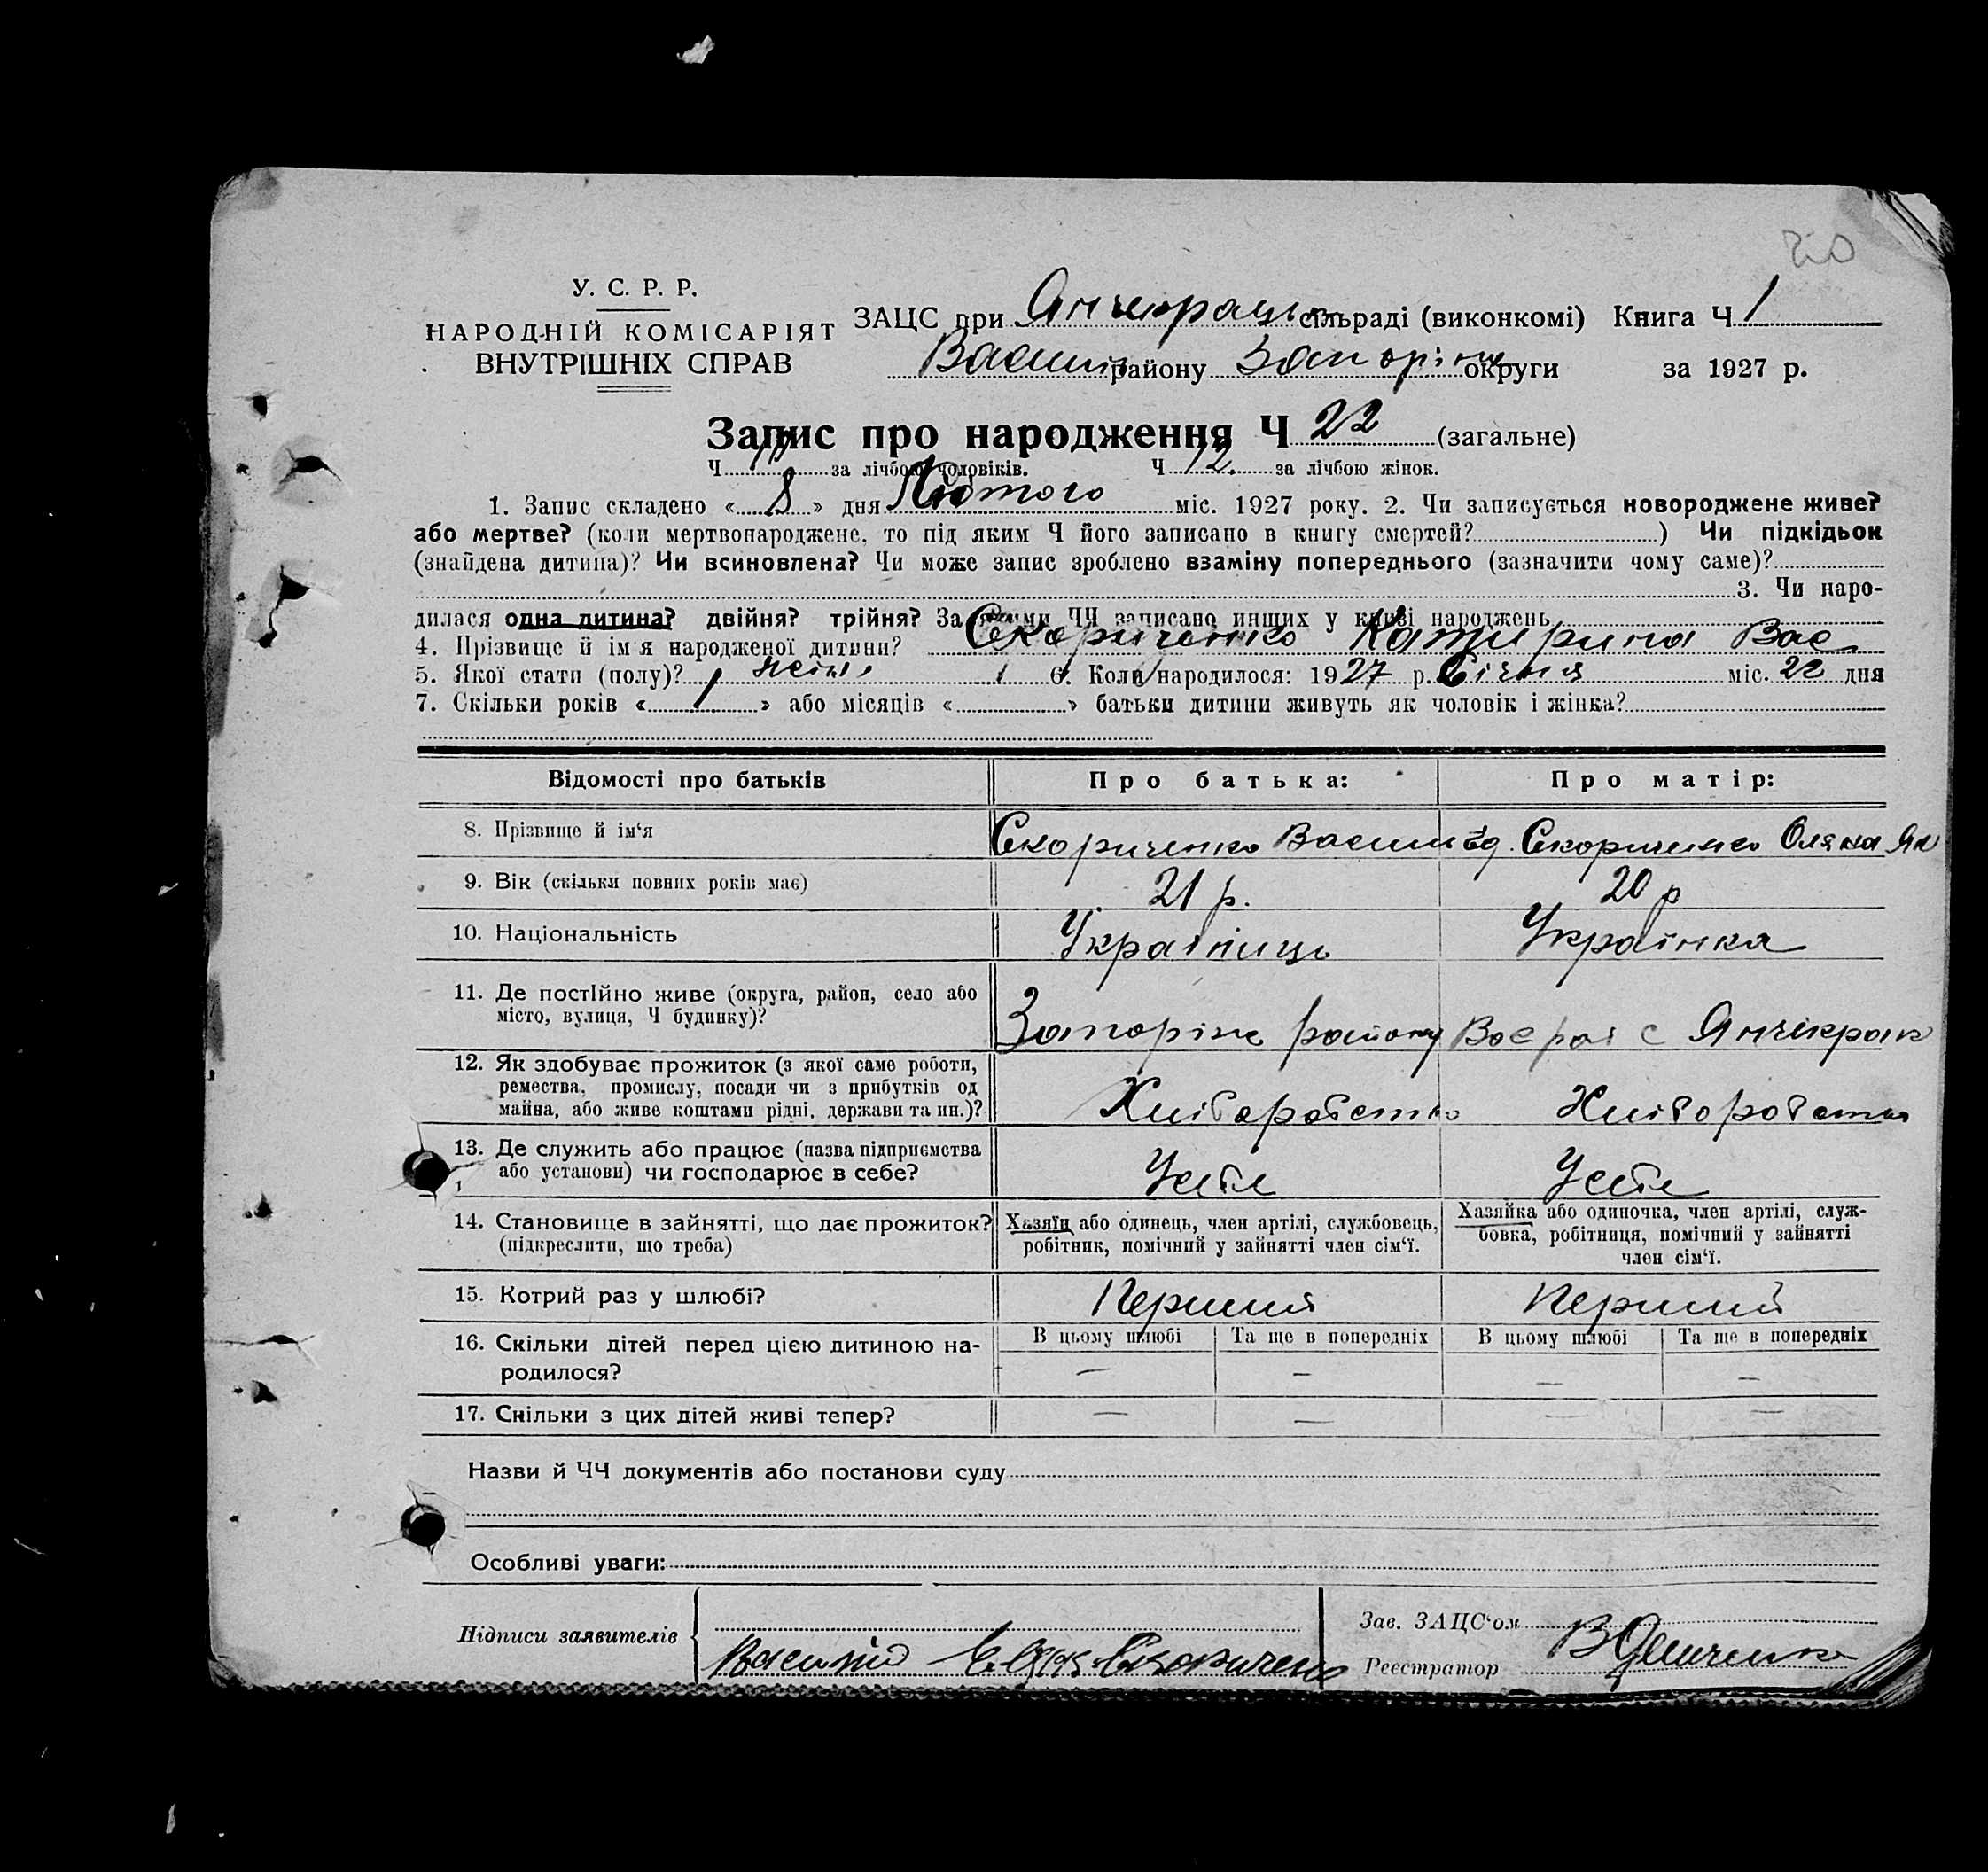 У. С. Р. Р.
НАРОДНІЙ КОМІСАРІЯТ
ВНУТРІШНІХ СПРАВ
ЗАЦС при Янчекраць сільраді (виконкомі) Книга Ч 1
Васил району Запоріж округи за 1927 р.
Запис про народження Ч 22 (загальне)
Ч за лічбою чоловіків. Ч 12 за лічбою жінок.
1. Запис складено « 8 » дня Лютого міс. 1927 року. 2. Чи записується новороджене живе?
або мертве? (коли мертвонароджене, то під яким Ч його записано в книгу смертей? ) Чи підкідьок
(знайдена дитина)? Чи всиновлена? Чи може запис зроблено взаміну попереднього (зазначити чому саме)?
3. Чи наро-
дилася одна дитина? двійня? трійня? За якими ЧЧ записано инших у книзі народжень
4. Прізвище й ім'я народженої дитини? Скориченко Катирина Вас
5. Якої стати (полу)? жін 6. Коли народилося: 1927 р. Січня міс. дня
7. Скільки років « 1 » або місяців « » батьки дитини живуть як чоловік і жінка?
Відомості про батьків Про батька: Про матір:
8. Прізвище й ім'я Скориченко Васил Єд. Скориченко Оляна Як
9. Вік (скільки повних років має) 21 р. 20 р
10. Національність Україниць Українка
11. Де постійно живе (округа, район, село або
місто, вулиця, Ч будинку)? Запоріж району Вас рай с Янчікрак
12. Як здобуває прожиток (з якої саме роботи,
ремества, промислу, посади чи з прибутків од
майна, або живе коштами рідні, держави та ин.)? Хлібаробство Хліборобство
13. Де служить або працює (назва підприємства
або установи) чи господарює в себе? Усебе Усебе
14. Становище в зайнятті, що дає прожиток?
(підкреслити, що треба)
Хазяїн або одинець, член артілі, службовець,
робітник, помічний у зайнятті член сім'ї.
Хазяйка або одиночка, член артілі, служ-
бовка, робітниця, помічний у зайнятті
член сім'ї.
15. Котрий раз у шлюбі? Перший Перший
16. Скільки дітей перед цією дитиною на-
родилося?
В цьому шлюбі Та ще в попередніх В цьому шлюбі Та ще в попередніх
— — — —
17. Скільки з цих дітей живі тепер? — — — —
Назви й ЧЧ документів або постанови суду
Особливі уваги:
Підписи заявителів Василь Скориченко
Зав. ЗАЦС'ом
Реєстратор